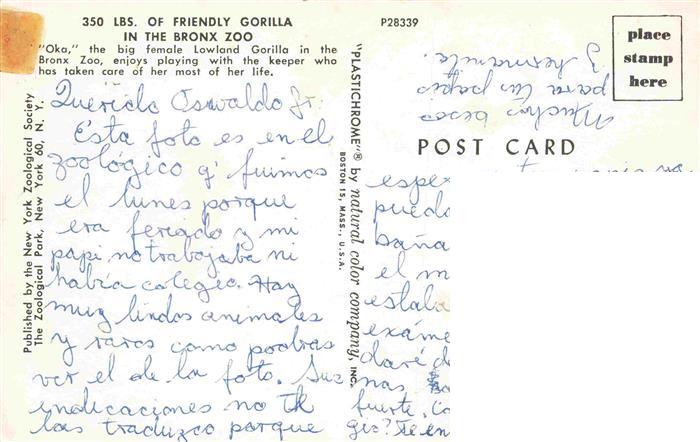 350 LBS. OF FRIENDLY GORILLA
IN THE BRONX ZOO
"Oka," the big female Lowland Gorilla in the
Bronx Zoo, enjoys playing with the keeper who
has taken care of her most of her life.
P28339
place
stamp
here
POST CARD
Published by the New York Zoological Society
The Zoological Park, New York 60, N. Y.
"PLASTICHROME"® by natural color company, INC.
BOSTON 15, MASS., U.S.A.
Querido Oswaldo Jr:
Esta foto es en el
zoológico q' fuimos
el lunes porque
era feriado y mi
papi no trabajaba ni
había colegio. Hay
muy lindos animales
y raros como podras
ver el de la foto. Sus
indicaciones no te
las traduzco porque
espe
puedo
baña
el m
estaba
exáme
daré d
nas
fuerte. Co
gio? Te en
Muchos besos
para tus papis
y hermanita.